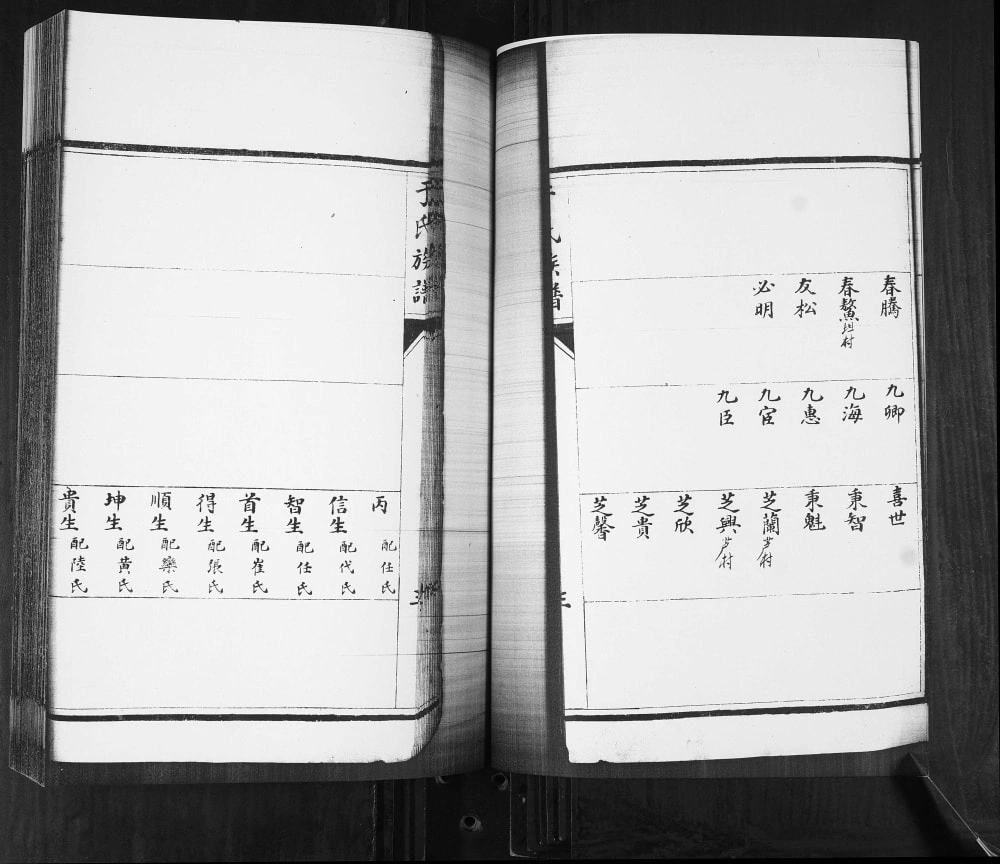 春騰
春鰲
友松
必明
九卿
九海
九惠
九宦
九臣
喜世
秉智
秉魁
芝蘭
芝興
芝欣
芝貴
芝馨
氏族譜
丙 配任氏
信生 配代氏
智生 配任氏
首生 配崔氏
得生 配張氏
順生 配欒氏
坤生 配黄氏
貴生 配陸氏